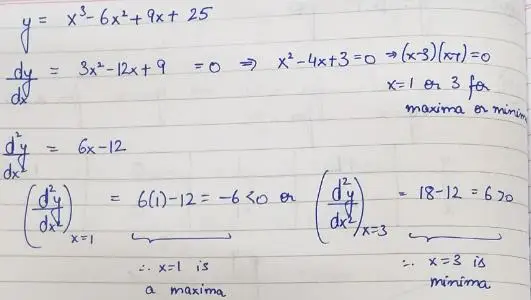 y = x³-6x²+9x+25
dy/dx = 3x²-12x+9 = 0 ⇒ x²-4x+3=0 ⇒ (x-3)(x-1)=0
x=1 or 3 for
maxima or minim
d²y/dx² = 6x-12
(d²y/dx²)x=1 = 6(1)-12 = -6<0 or (d²y/dx²)x=3 = 18-12 = 6>0
∴ x=1 is
a maxima
∴ x=3 is
minima